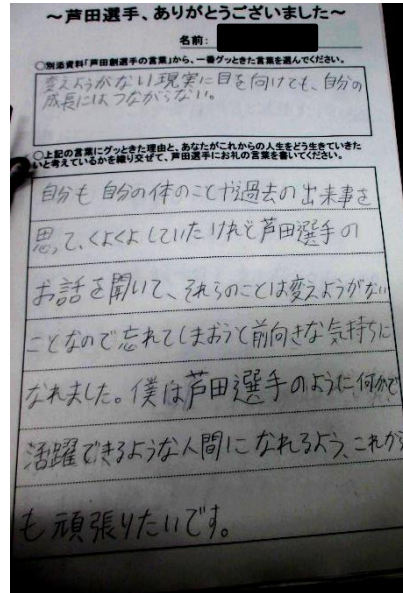 ～芦田選手、ありがとうございました～
名前：
○別添資料「芦田創選手の言葉」から、一番グッときた言葉を選んでください。
変えようがない現実に目を向けても、自分の
成長にはつながらない。
○上記の言葉にグッときた理由と、あなたがこれからの人生をどう生きていきた
いと考えているかを織り交ぜて、芦田選手にお礼の言葉を書いてください。
自分も自分の体のことや過去の出来事を
思って、くよくよしていたけれど芦田選手の
お話を聞いて、それらのことは変えようがない
ことなので忘れてしまおうと前向きな気持ちに
なれました。僕は芦田選手のように何かで
活躍できるような人間になれるよう、これから
も頑張りたいです。